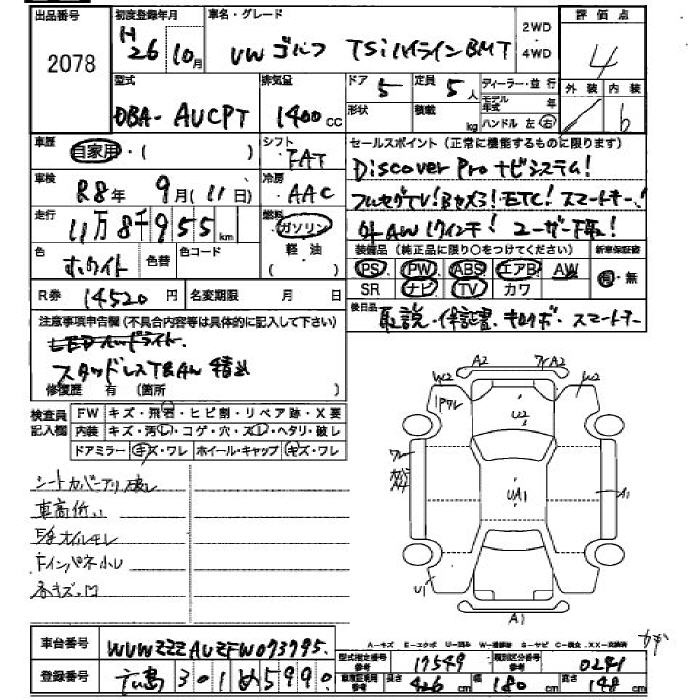 出品番号 初度登録年月 車名・グレード 2WD・4WD 評価点
2078 H26 10月 VW ゴルフ TSiハイラインBMT 4
型式 排気量 ドア 定員 ディーラー・並行 外装 内装
DBA- AUCPT 1400 cc 5 5人 モデル年式 年 b
形状 積載 kg ハンドル 左 右
車歴 自家用・( ) シフト FAT セールスポイント(正常に機能するものに限ります)
Discover Pro ナビシステム!
車検 R8年 9月(11日) 冷房 AAC フルセグTV!Bカメラ!ETC!スマートキー!
走行 11万8千955km 燃料 ガソリン 軽・油 ( ) 外AW 17インチ! ユーザー下取!
色 ホワイト 色替 色コード 装備品(純正品に限り○をつけてください) 新車保証書
PS PW ABS エアB AW 有・無
SR ナビ TV カワ
R券 14520円 名変期限 月 日 後日品 取説・保証書・キロクボ・スマートキー
注意事項申告欄(不具合内容等は具体的に記入して下さい)
LEDヘッドライト
スタッドレスT&AW 積込
修復歴 有 (箇所 )
検査員記入欄 FW キズ・飛石・ヒビ割・リペア跡・X要
内装 キズ・汚レ・コゲ・穴・スレ・ヘタリ・破レ
ドアミラー キズ・ワレ ホイール・キャップ キズ・ワレ
シートカバーアリ 破レ
車高低い
E/gオイルモレ
Fインパネ小レ
各キズ・凹
A2 A2
W2 W2
Pワレ
U2
UA1 A1
U1
A1
A-キズ E-エクボ U-凹み W-補修跡 S-サビ C-腐食 XX-交換済
車台番号 WVWZZZAUZFW073795
型式指定番号 参考 17549 類別区分番号 参考 0241
登録番号 広島 301 め 5990
車両証明用 参考 長さ 426 cm 幅 180 cm 高さ 148 cm